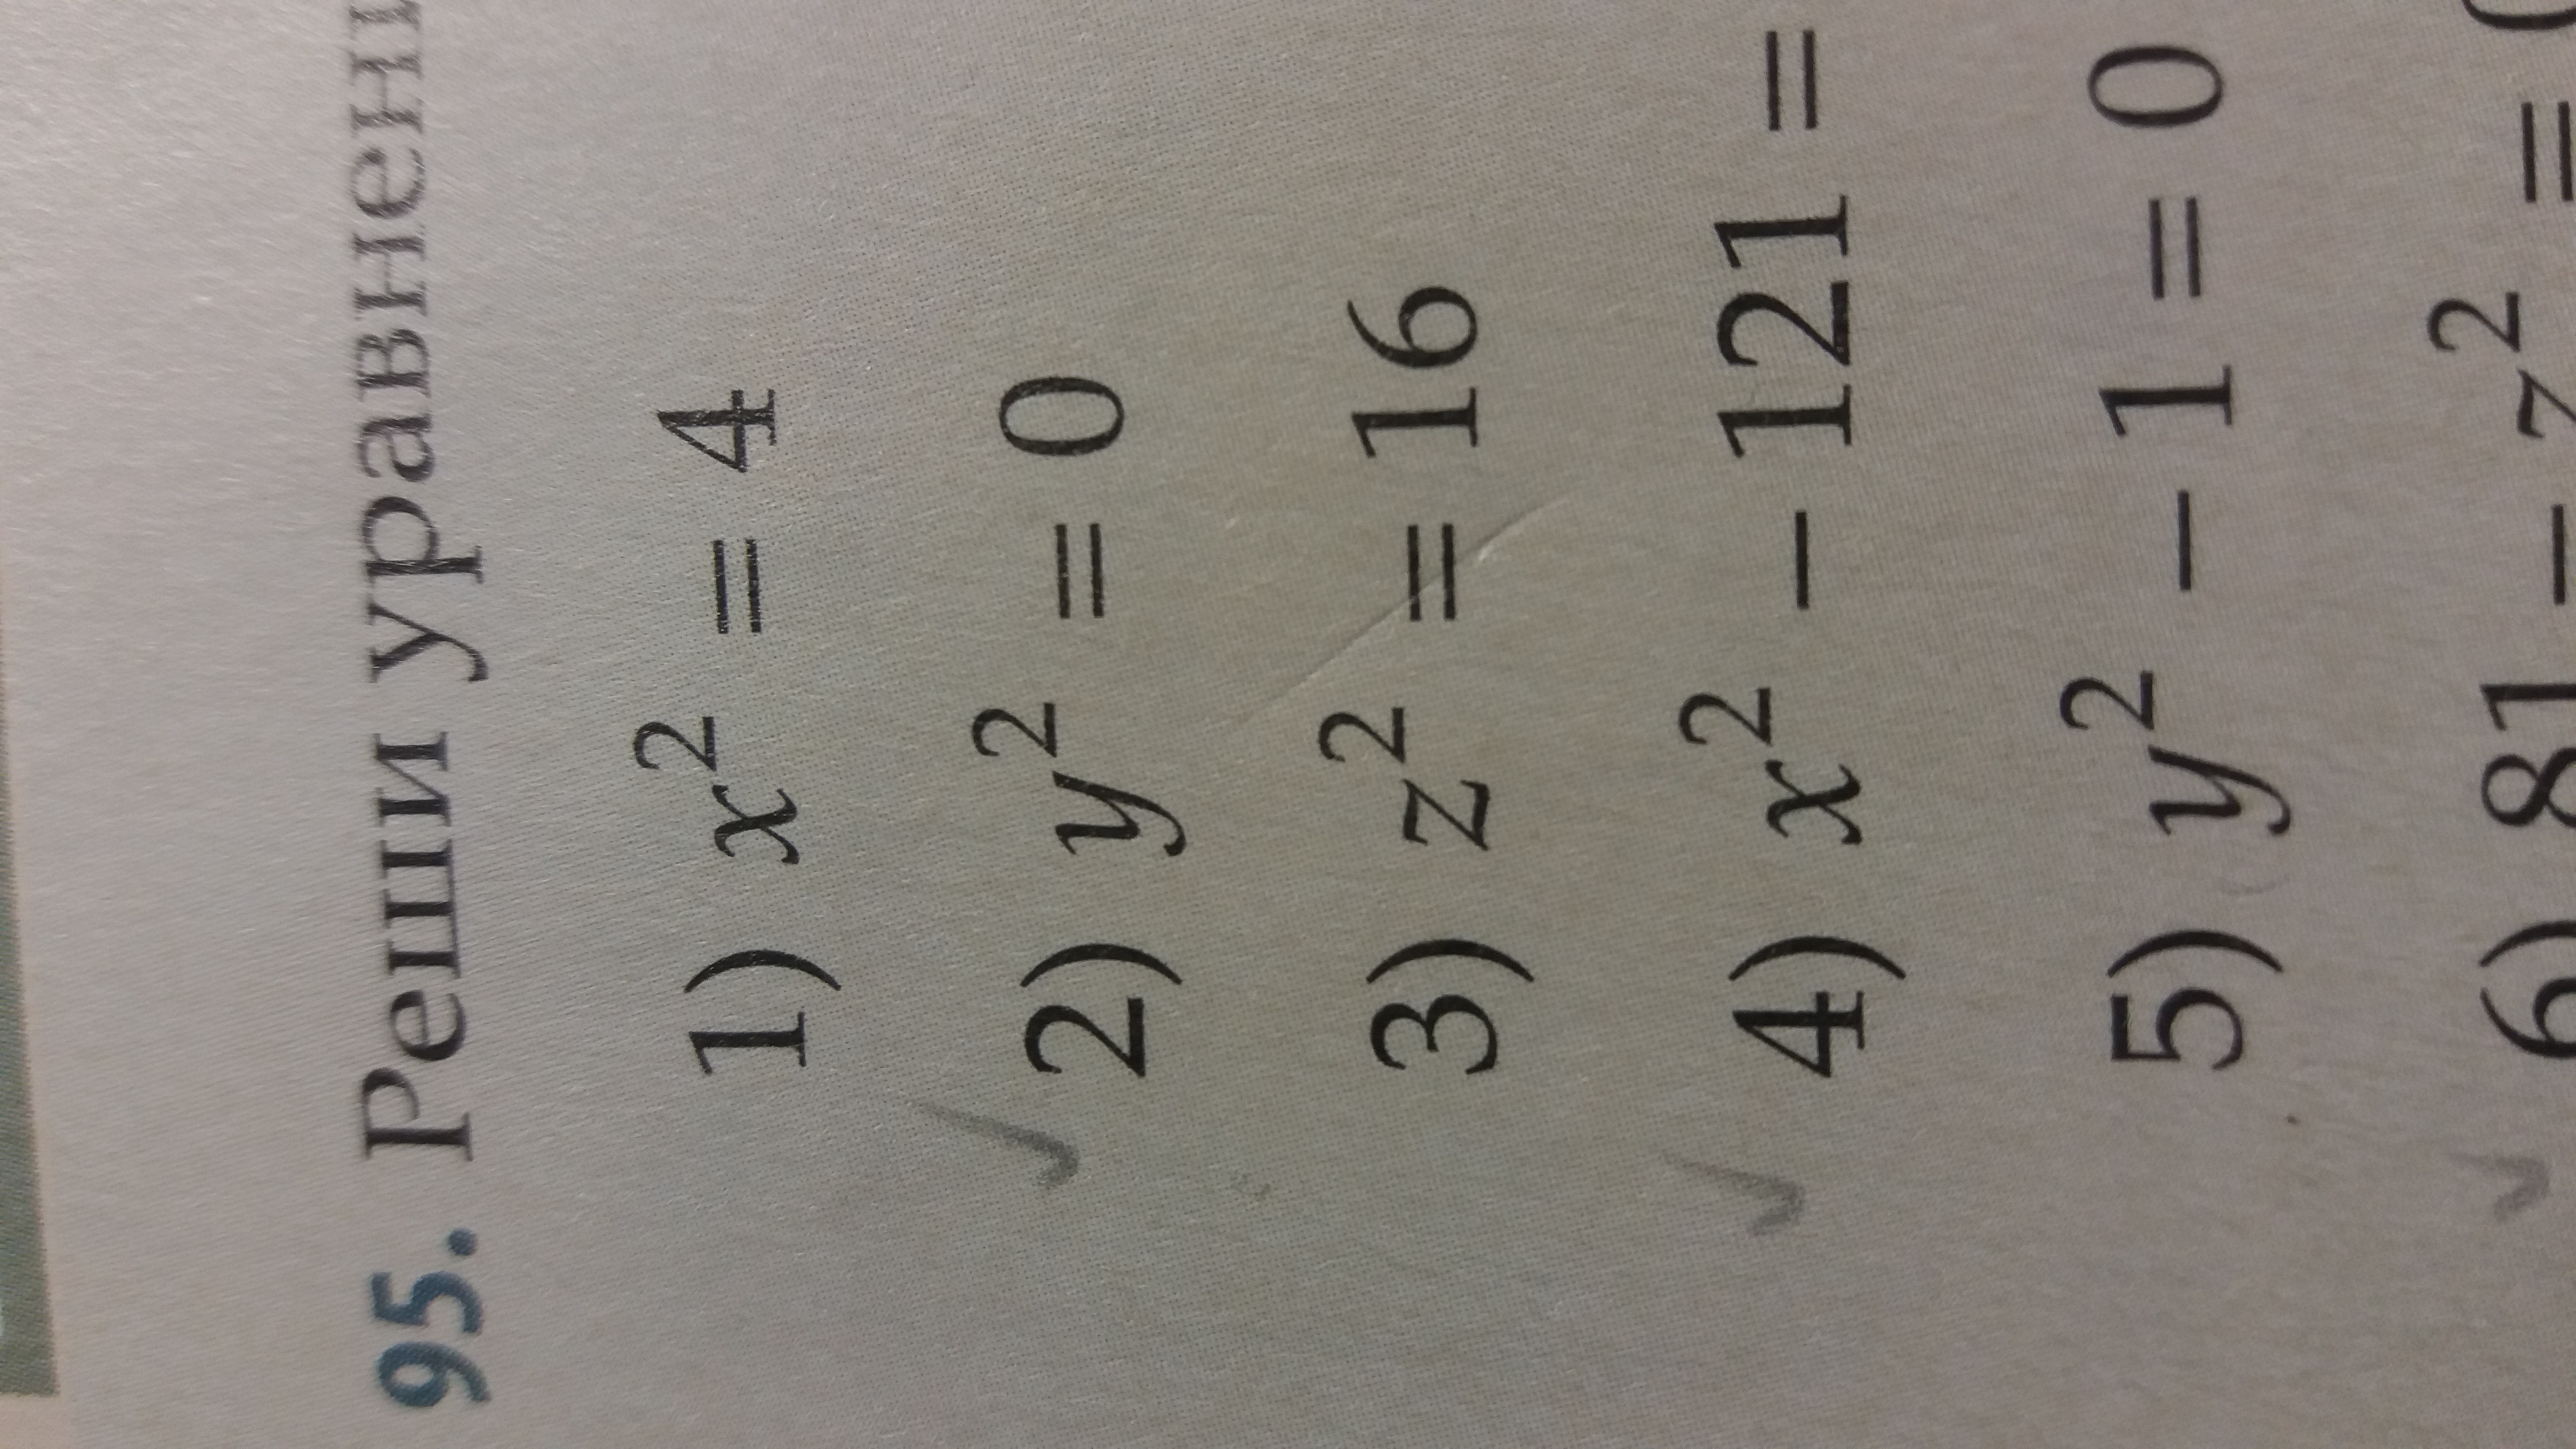 95. Реши уравнени
1) x² = 4
2) y² = 0
3) z² = 16
4) x² − 121 =
5) y² − 1 = 0
6) 81 − z² = 0